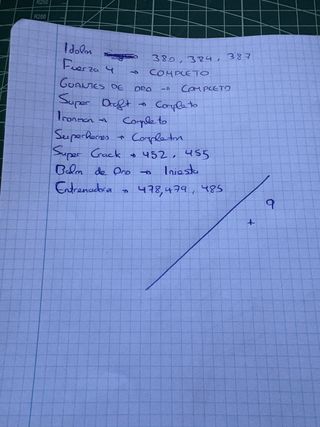 Idolm 380, 384, 387
Fuerza 4 → COMPLETO
GUANTES DE ORO → COMPLETO
Super Draft → Completo
Ironman → Completo
Superheroes → Completm
Super Crack → 452, 455
Balm de Oro → Iniesta
Entrenadora → 478, 479, 485
9
+